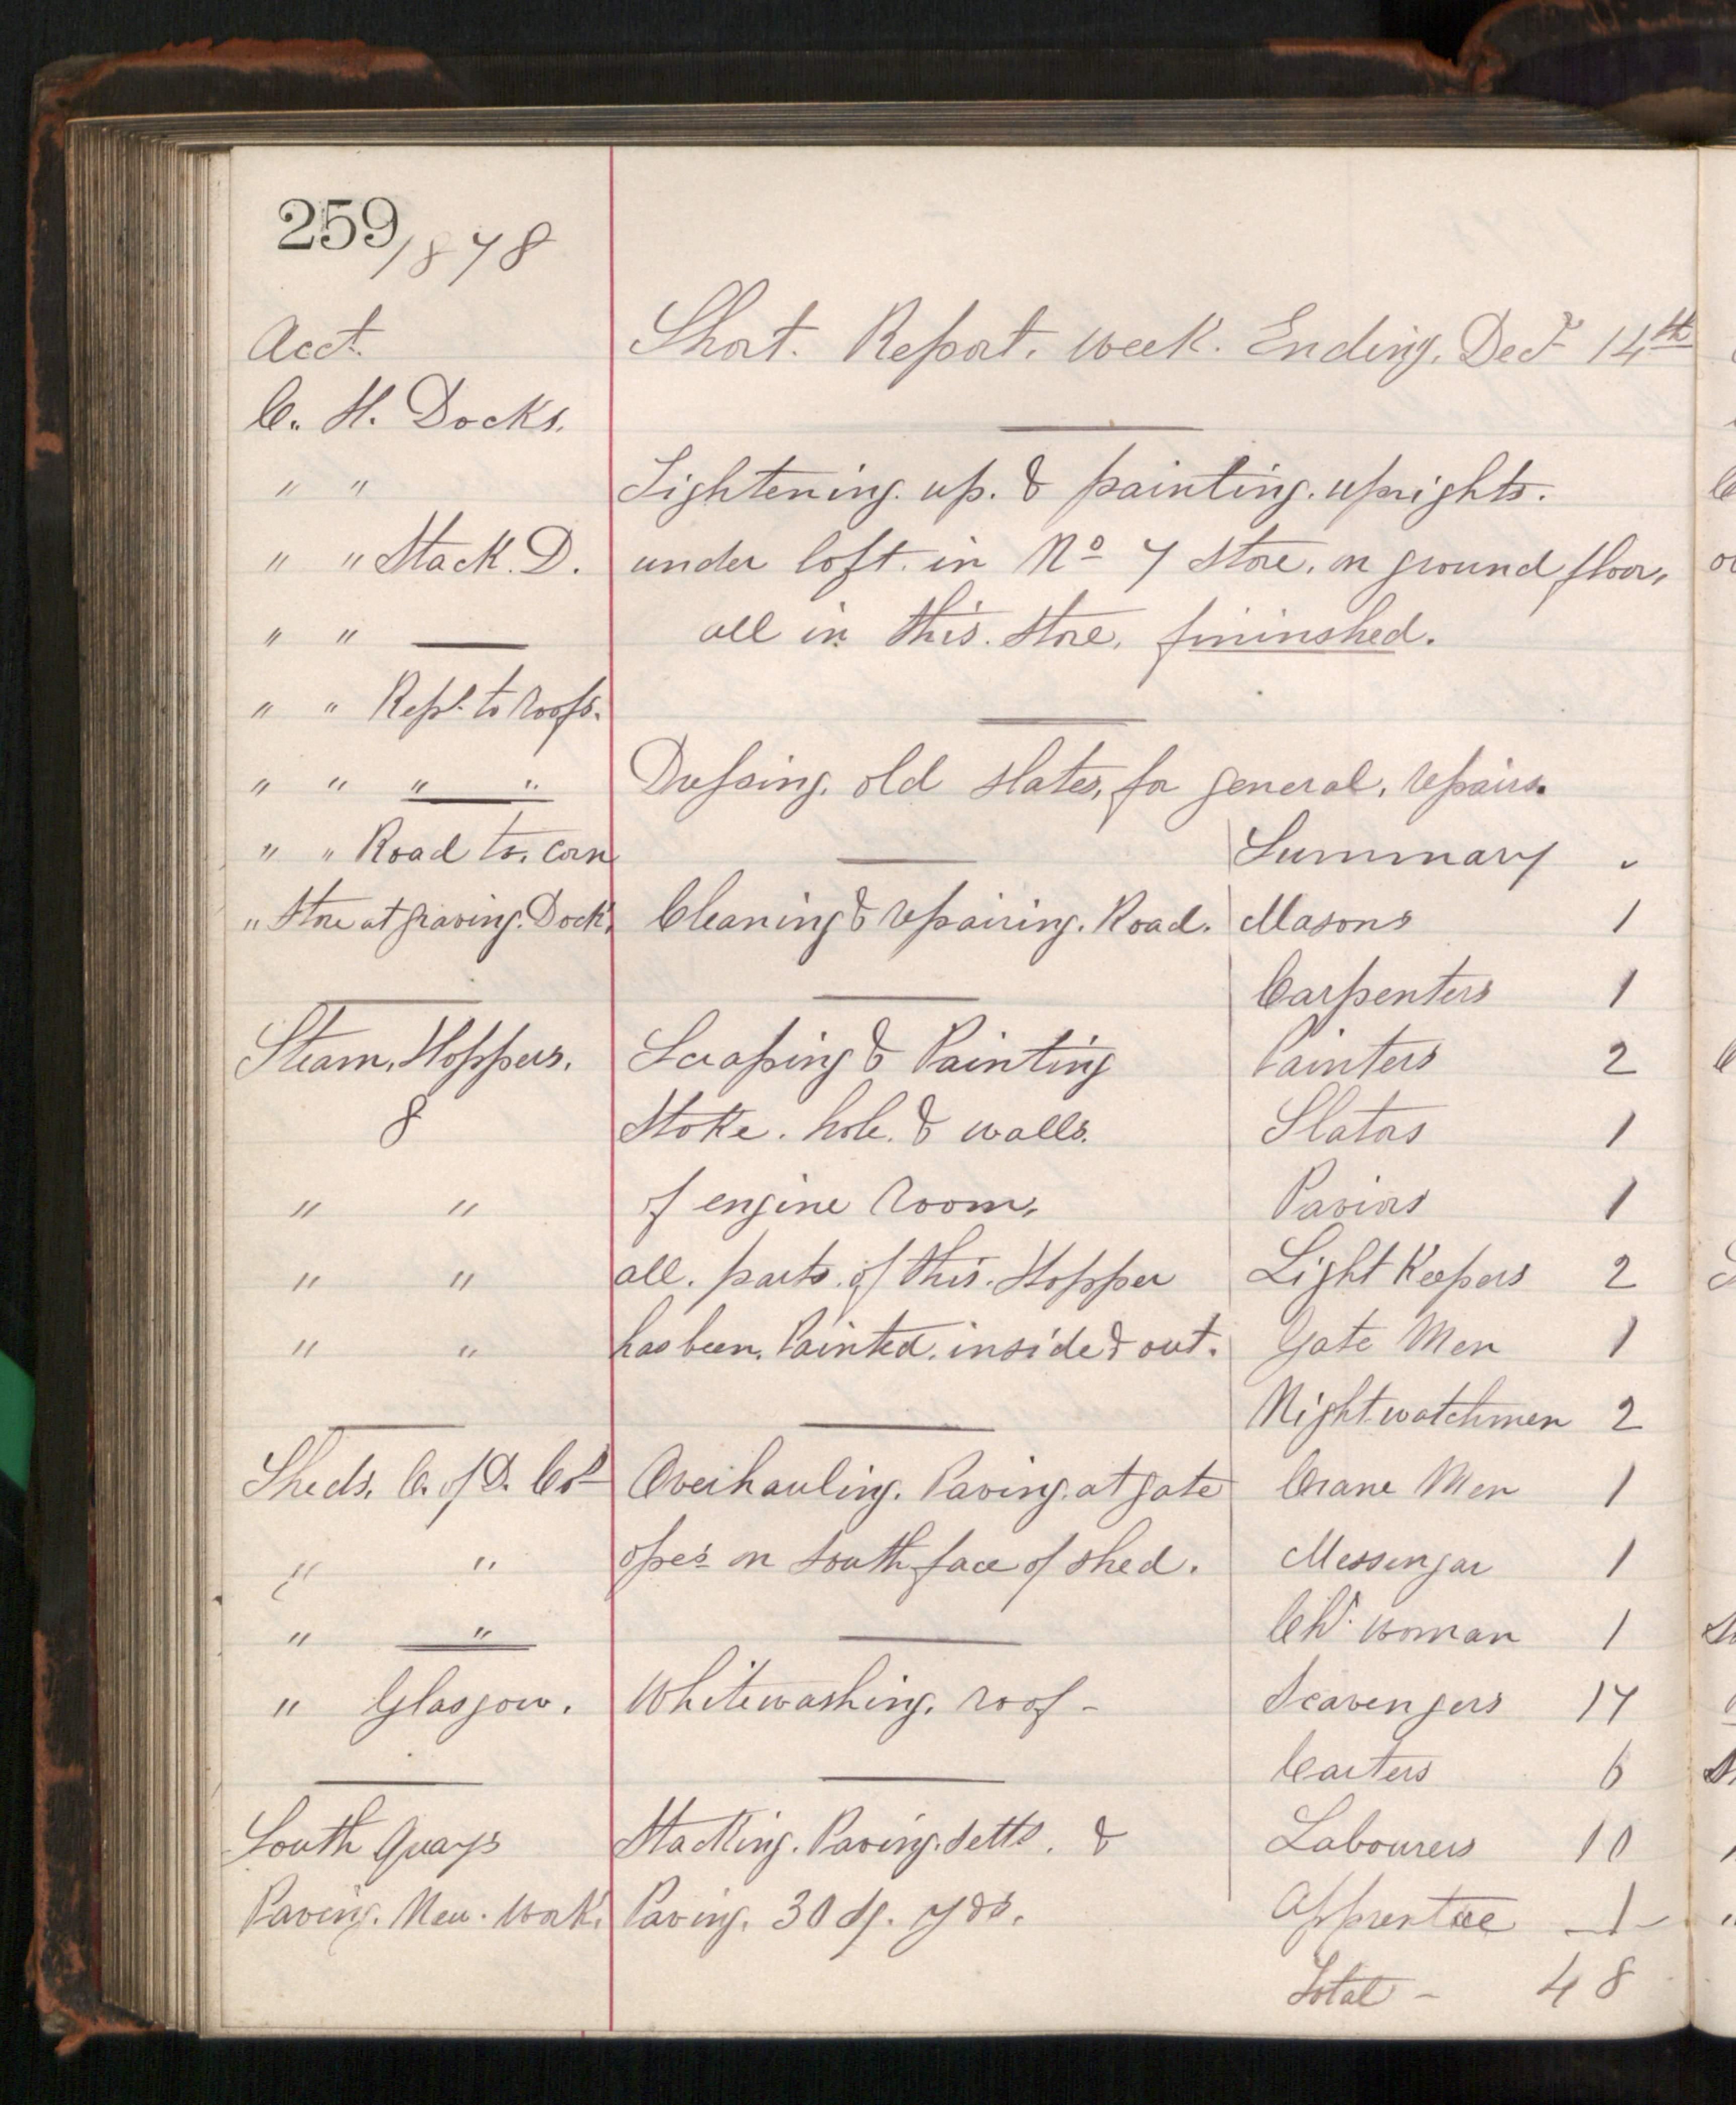 259
1878
Acct.
Short. Report. week. Ending. Decr 14th
C. H. Docks.
" "
Lightening. up. & painting. uprights.
" " Stack. D.
under loft. in No 7 Store. on ground floor,
" "
all in this. Store. fininshed.
" " Reps. to Roofs.
" " " "
Dressing. old slates, for general. repairs.
" " Road to. Corn
Summary
" Store at graving. Dock.
Cleaning & repairing. Road.
Masons 1
Carpenters 1
Steam. Hoppers.
Scraping & Painting
Painters 2
8
Stoke. hole. & walls.
Slators 1
" "
of engine Room,
Paviors 1
" "
all. parts. of this. Hopper
Light Keepers 2
" "
has been. Painted. inside & out.
Gate Men 1
Night watchmen 2
Sheds. C. of D. Co.
Overhauling. Paving. at gate
Crane Men 1
" "
opes on South face of shed.
Messengar 1
" "
Ch. woman 1
" Glasgow.
Whitewashing. roof -
Scavengers 17
Carters 6
South Quays
Stacking. Paving. setts. &
Labourers 10
Paving. New. Work.
Paving. 30 sq. yds.
Apprentice 1
Total - 48